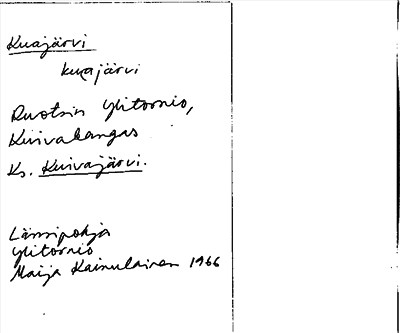 Kuajärvi
kuajärvi
Ruotsin Ylitornio,
Kuivakangas
Ks. Kuivajärvi.
Länsipohja
Ylitornio
Maija Kainulainen 1966